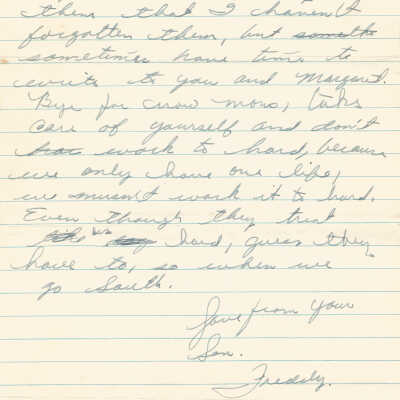 them that I haven't
forgotten them, but
sometimes have time to
write to you and Margaret.
Bye for now mono, take
care of yourself and don't
work to hard, because
we only have one life,
we musn't work it to hard.
Even though they treat
us hard, guess they
have to, so when we
go South.
Love from Your
Son.
Freddy.